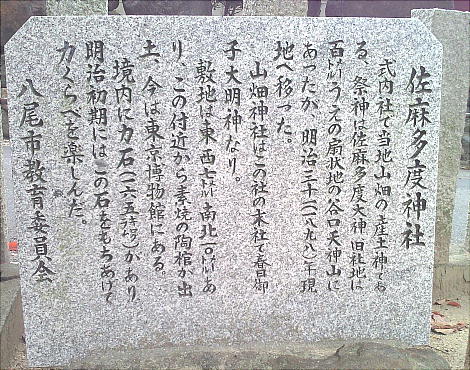 佐麻多度神社
式内社で当地山畑の産土神であ
る、祭神は佐麻多度大神 旧社地は
百㍍うえの扇状地の谷口天神山に
あったが、明治三十一(一八九八)年現
地へ移った。
山畑神社はこの社の末社で春日御
子大明神なり。
敷地は東西七㍍南北一〇㍍あ
り、この付近から素焼の陶棺が出
土、今は東京博物館にある。
境内に力石(二六五㌔)があり
明治初期にはこの石をもちあげて
力くらべを楽しんだ。
八尾市教育委員会